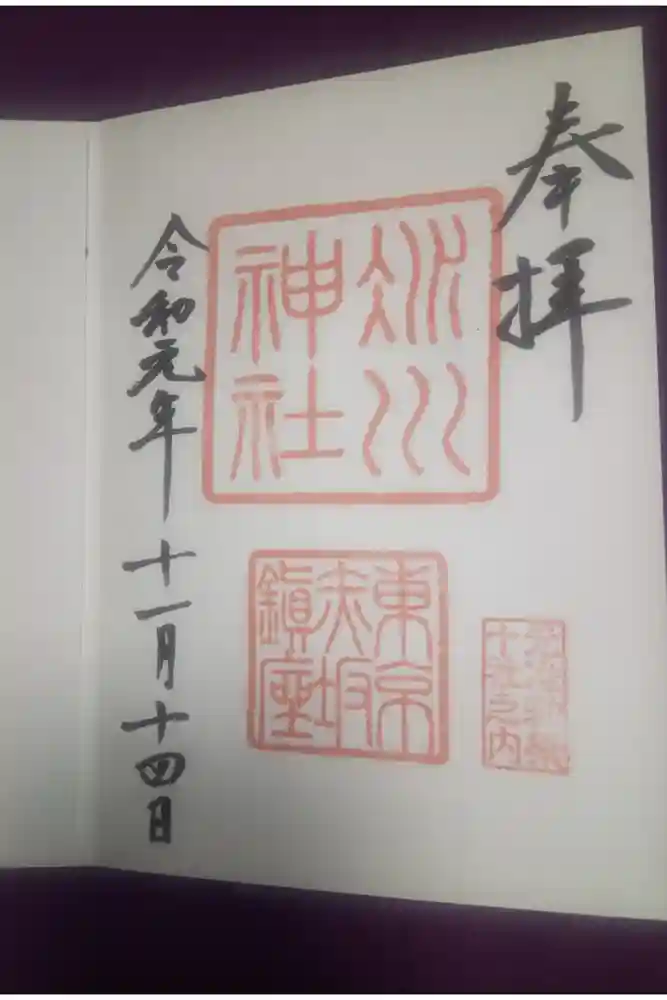 奉拝
氷川
神社
東京
赤坂
鎮座
十社之内
令和元年十一月十四日